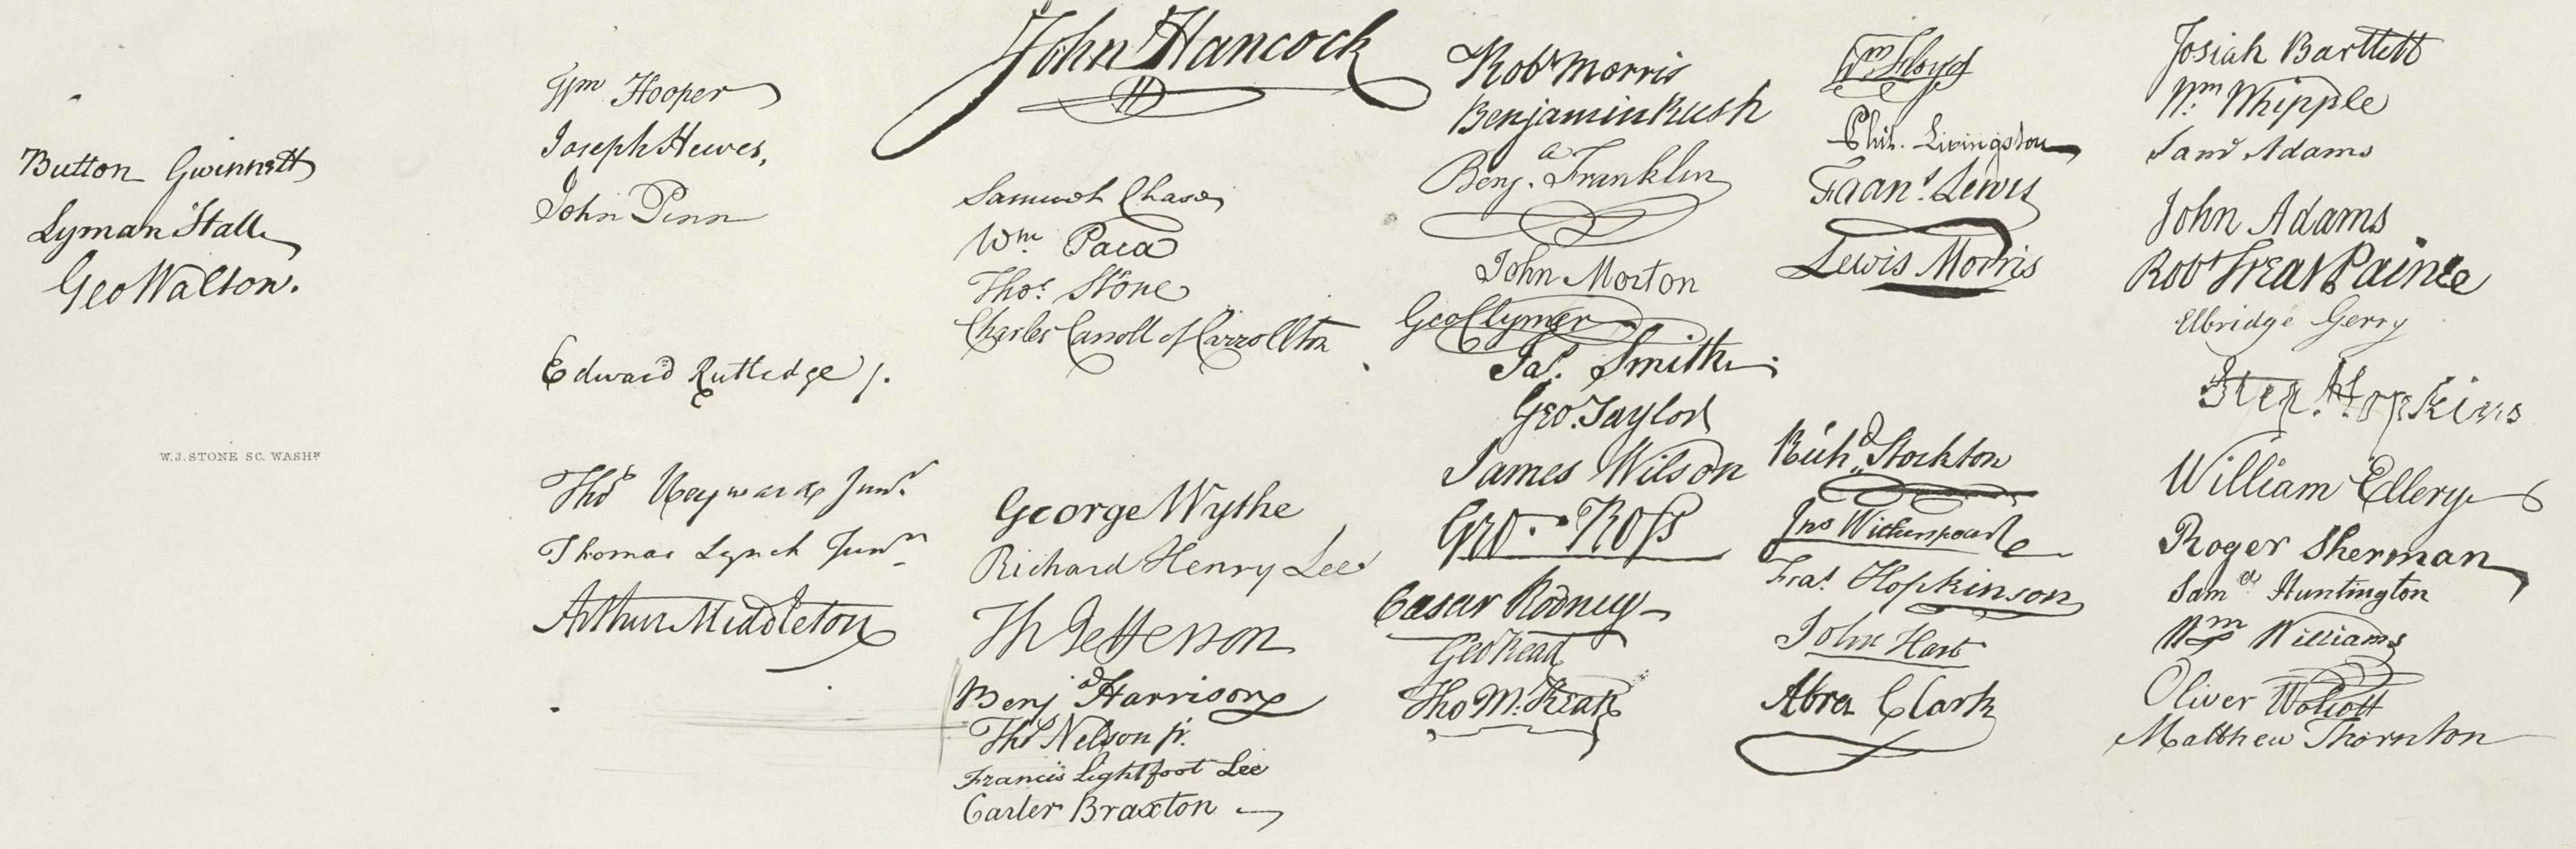 Button Gwinnett
Lyman Hall
Geo Walton.
W. J. STONE SC. WASHN
Wm Hooper
Joseph Hewes,
John Penn
Edward Rutledge /.
Thos Heyward Junr.
Thomas Lynch Junr.
Arthur Middleton
John Hancock
Samuel Chase
Wm. Paca
Thos. Stone
Charles Carroll of Carrollton
George Wythe
Richard Henry Lee
Th Jefferson
Benj Harrison
Thos Nelson jr.
Francis Lightfoot Lee
Carter Braxton
Robt Morris
Benjamin Rush
Benj. Franklin
John Morton
Geo Clymer
Jas. Smith
Geo. Taylor
James Wilson
Geo. Ross
Caesar Rodney
Geo Read
Tho M:Kean
Wm Floyd
Phil. Livingston
Frans. Lewis
Lewis Morris
Richd. Stockton
Jno Witherspoon
Fras. Hopkinson
John Hart
Abra Clark
Josiah Bartlett
Wm. Whipple
Saml Adams
John Adams
Robt Treat Paine
Elbridge Gerry
Step. Hopkins
William Ellery
Roger Sherman
Samel Huntington
Wm Williams
Oliver Wolcott
Matthew Thornton